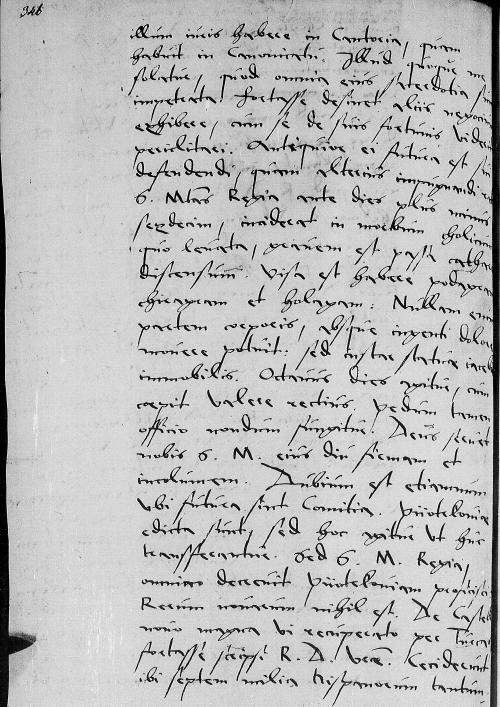 346
illum iuris habere in Cantoria, quam
habuit in Canonicatu. Illud quoque me
solatur, quod omnia eius sacerdotia sint
impetrata. Fortasse desinet aliis negotia
exhibere, cum se de suis fortunis viderit
periclitari. Antiquior ei futura est sui
defendendi, quam alterius impugnandi
S. Mtas Regia ante dies plus minus
sexdecim, inciderat in morbum cholicum
quo levata, gravem est passa catharri
distensum. Visa est habere podagram
chiragram et holagram. Nullam enim
partem corporis, absque ingenti dolore
movere potuit: sed instar statuae iacebat
immobilis. Octavus dies agitur, cum
coepit valere rectius, pedum tamen
officio nondum fungitur. Deus servet
nobis S. M. eius diu firmam et
incolumem. Dubium est etiamnum
ubi futura sint Comitia. Piotrkoviae
edicta sunt, sed hoc agitur ut huc
transferantur. Sed S. M. Regia,
omnino decrevit Piotrkoviam proficisci
Rerum novarum nihil est. De Castel
novo magna vi recuperato per Turcas
fortasse scripsi R. D. Vrae. Ceciderunt
ibi septem milia Hispanorum tantum.